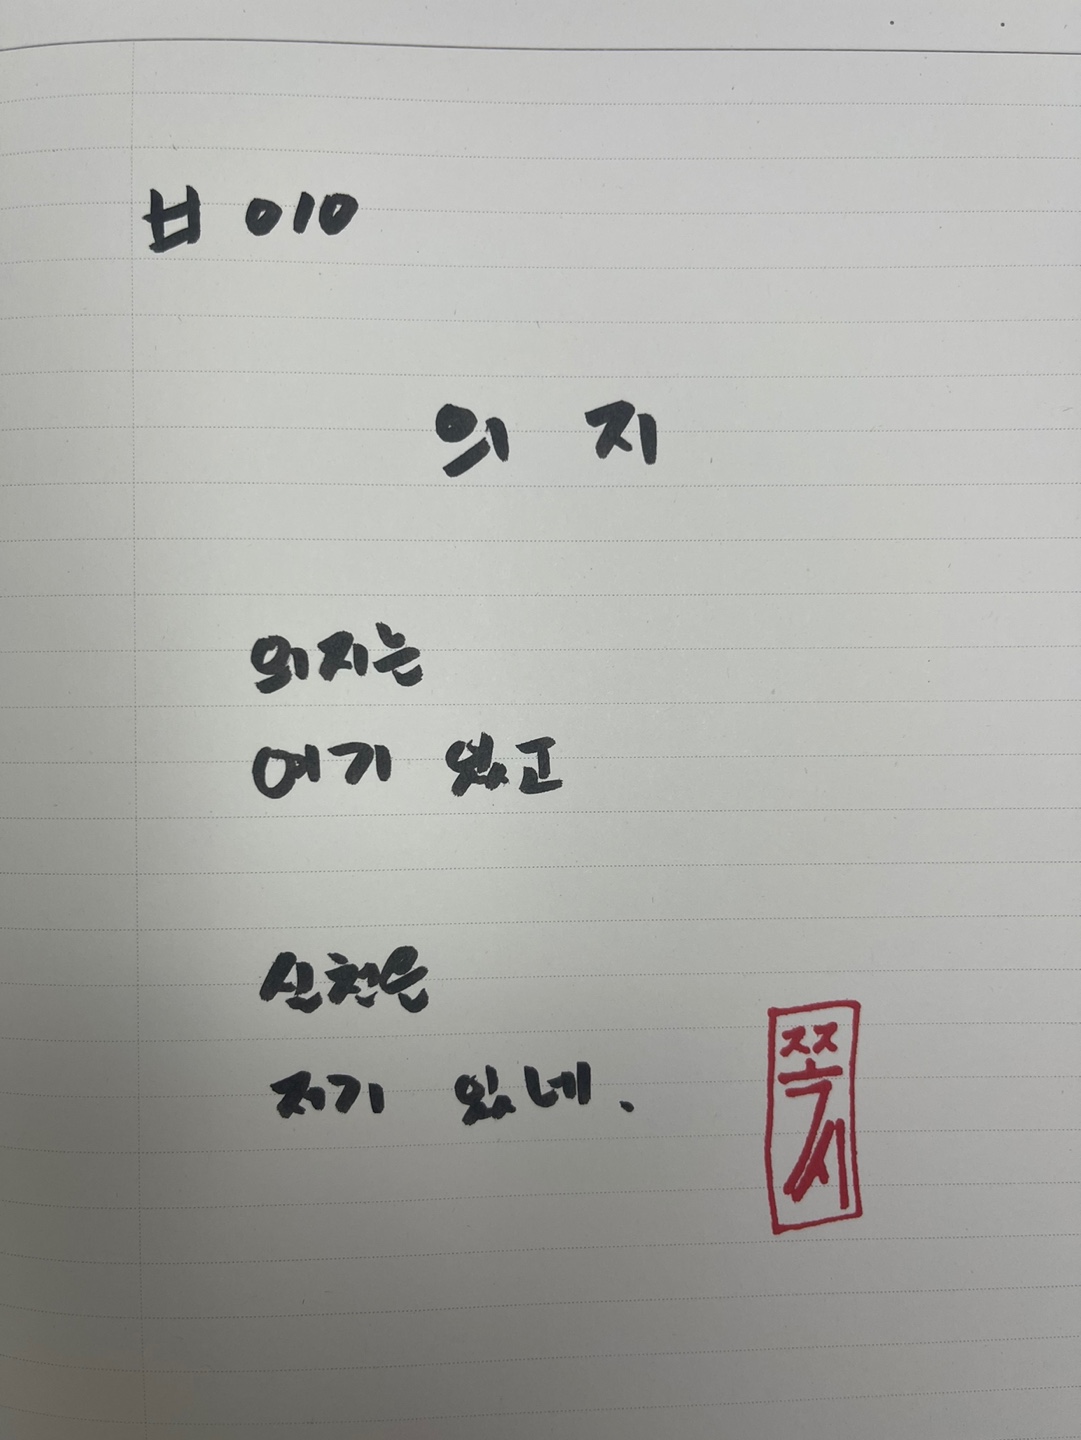 ㅂ 010
의 지
의지는
여기 있고
신천은
저기 있네.
쪽시